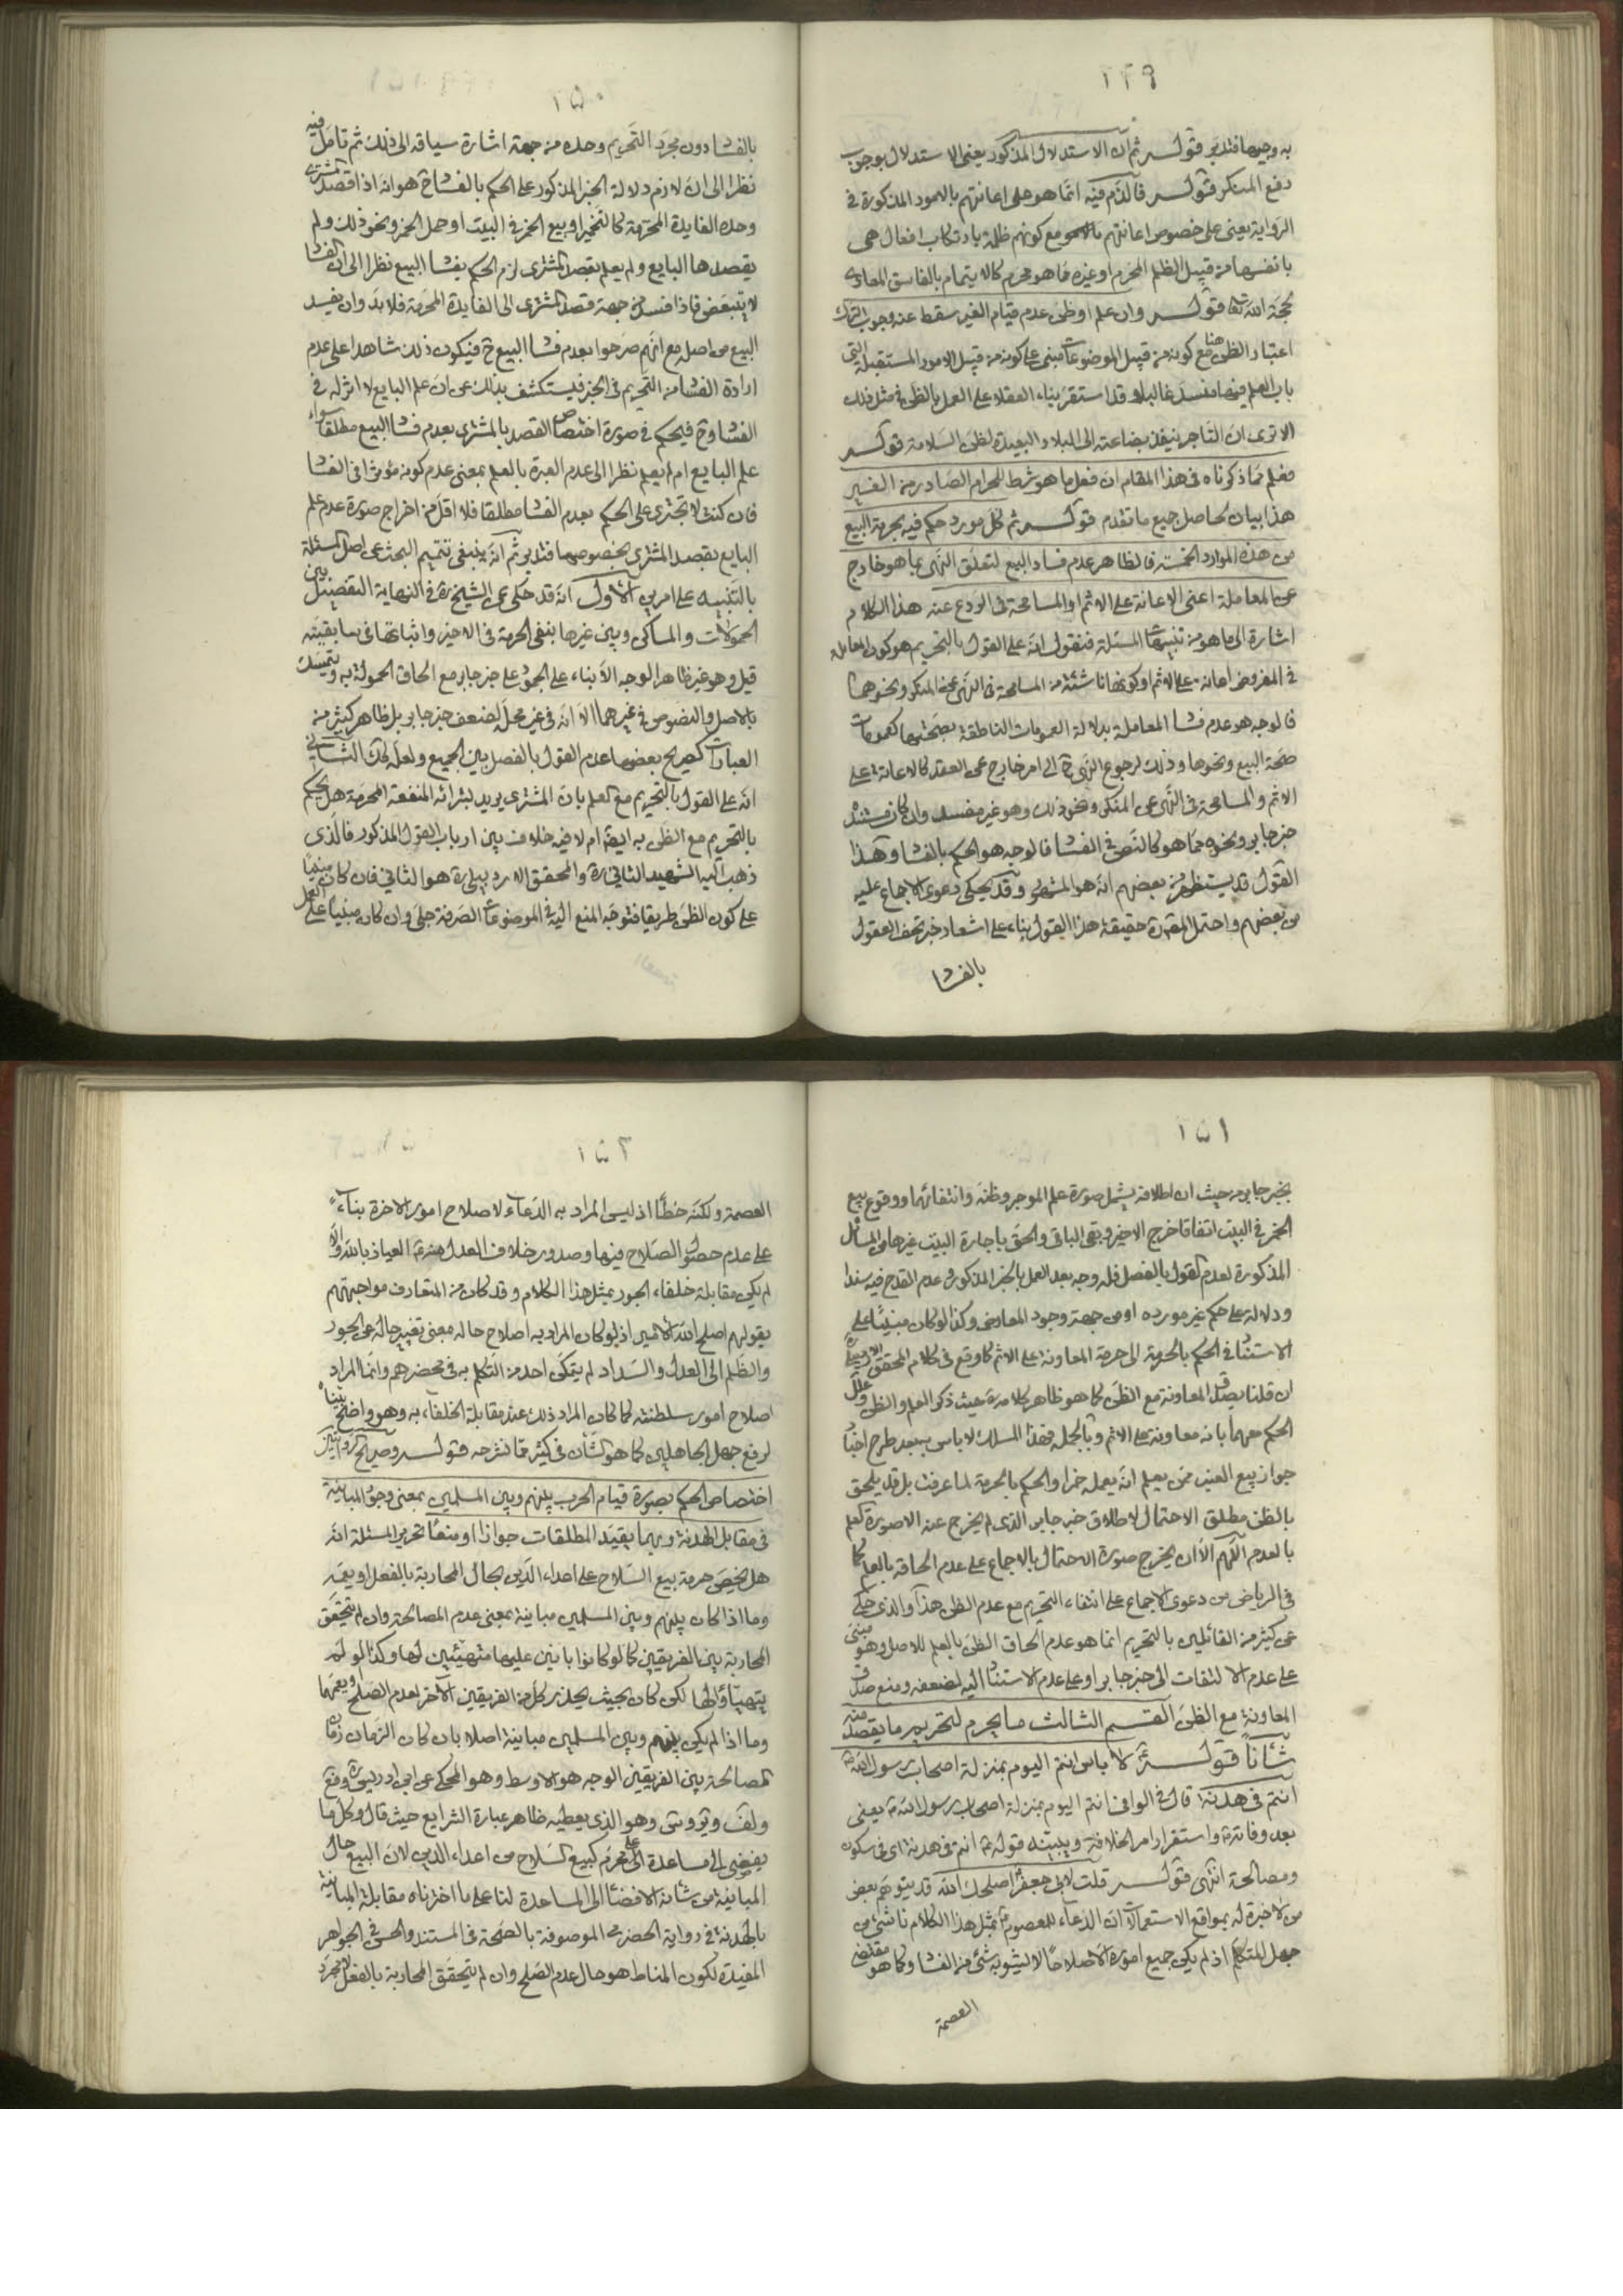 ١٤٩
به وجيهها فتدبر قوله ثم ان الاستدلال المذكور يعنى الاستدلال بوجوب
دفع المنكر قوله فالذم فيه انما هو على اعانتهم بالامور المذكورة فى
الرواية يعنى على خصوص اعانتهم بالامور مع كونهم ظلمة بارتكاب افعال هى
بانفسها من قبيل الظلم المحرم او غيره مما هو محرم كالايتمام بالفاسق المعادى
لحجة الله تعالى قوله وان علم او ظن عدم قيام الغير سقط عنه وجوب الترك
اعتبار الظن هنا مع كونه من قبيل الموضوعات مبنى على كونه من قبيل الامور المستقبلة التى
باب العلم فيها منسد غالبا وقد استقر بناء العقلاء على العمل بالظن فى مثل ذلك
الا ترى ان التاجر ينفذ بضاعته الى البلاد البعيدة لظن السلامة قوله
فعلم مما ذكرناه فى هذا المقام ان فعل ما هو شرط للحرام الصادر من الغير
هذا بيان لحاصل جميع ما تقدم قوله ثم كل مورد حكم فيه بحرمة البيع
من هذه الموارد الخمسة فالظاهر عدم فساد البيع لتعلق النهى بما هو خارج
عن المعاملة اعنى الاعانة على الاثم او المسامحة فى الردع عنه هذا الكلام
اشارة الى ما هو من تنبيهات المسئلة فنقول انه على القول بالتحريم هو كون المعاملة
فى المفروض اعانة على الاثم او كونها ناشئة من المسامحة فى النهى عن المنكر ونحوهما
فالوجه هو عدم فساد المعاملة بدلالة العمومات الناطقة بصحتها كعمومات
صحة البيع ونحوها وذلك لرجوع النهى ح الى امر خارج عن العقد كالاعانة على
الاثم والمسامحة فى النهى عن المنكر ونحو ذلك وهو غير مفسد وان كان مستنده
خبر جابر ونحوه مما هو كالنص فى الفساد فالوجه هو الحكم بالفساد وهذا
القول قد يستظهر من بعضهم انه هو المشهور وقد يحكى دعوى الاجماع عليه
من بعضهم واحتمل المص ره حقيقة هذا القول بناء على اشعار خبر تحف العقول
بالفساد
١٥٠
بالفساد دون مجرد التحريم وحده من جهة اشارة سياقه الى ذلك ثم تامل فيه
نظرا الى ان لازم دلالة الخبر المذكور على الحكم بالفساد ح هو انه اذا قصد المشترى
وحده الفايدة المحرمة كالتخمير او بيع الخمر فى البيت او حمل الخمر ونحو ذلك ولم
يقصدها البايع ولم يعلم بقصد المشترى لزم الحكم بفساد البيع نظرا الى ان الفساد
لا يتبعض فاذا فسد من جهة قصد المشترى الى الفايدة المحرمة فلا بد وان يفسد
البيع من اصله مع انهم صرحوا بعدم فساد البيع ح فيكون ذلك شاهدا على عدم
ارادة الفساد من التحريم فى الخبر فيستكشف بذلك عن ان علم البايع لا اثر له فى
الفساد وح فيحكم فى صورة اختصاص القصد بالمشترى بعدم فساد البيع مطلقا سواء
علم البايع ام لم يعلم نظرا الى عدم العبرة بالعلم بمعنى عدم كونه مؤثرا فى الفساد
فان كنت لا تجترى على الحكم بعدم الفساد مطلقا فلا اقل من اخراج صورة عدم علم
البايع بقصد المشترى بخصوصها فتدبر ثم انه ينبغى تتميم البحث عن اصل المسئلة
بالتنبيه على امرين الاول انه قد حكى عن الشيخ ره فى النهاية التفصيل بين
الحمولات والمساكن وبين غيرها بنفى الحرمة فى الاخير واثباتها فى سابقيته
قيل وهو غير ظاهر الوجه الا بناء على الجمود على خبر جابر مع الحاق الحمولة به ويتمسك
بالاصل والنصوص فى غيرهما الا انه فى غير محله لضعف خبر جابر بل ظاهر كثير من
العبارات كصريح بعضها عدم القول بالفصل بين الجميع ولعله لذلك الثانى
انه على القول بالتحريم مع العلم بان المشترى يريد بشرائه المنفعة المحرمة هل يحكم
بالتحريم مع الظن به ايضا ام لا فيه خلاف بين ارباب القول المذكور فالذى
ذهب اليه الشهيد الثانى ره والمحقق الاردبيلى ره هو الثانى فان كان مبنيا
على كون الظن طريقا فتوجه المنع اليه فى الموضوعات الصرفة جلى وان كان مبنيا على العمل
١٥١
بخبر جابر من حيث ان اطلاقه يشمل صورة علم الموجر وظنه وانتفائهما ووقوع بيع
الخمر فى البيت اتفاقا خرج الاخير وبقى الباقى والحق باجارة البيت غيرها من المسائل
المذكورة لعدم القول بالفصل فله وجه بعد العمل بالخبر المذكور وعدم القدح فيه سندا
ودلالة على حكم غير مورده او من جهة وجود المعارض وكذا لو كان مبنيا على
الاستناد فى الحكم بالحرمة الى حرمة المعاونة على الاثم كما وقع فى كلام المحقق الاردبيلى ره
ان قلنا بصدق المعاونة مع الظن كما هو ظاهر كلامه ره حيث ذكر العلم والظن وعلل
الحكم معهما بانه معاونة على الاثم وبالجملة فهذا المسلك لا باس به بعد طرح اخبار
جواز بيع العنب ممن يعلم انه يعمله خمرا والحكم بالحرمة لما عرفت بل قد يلحق
بالظن مطلق الاحتمال لاطلاق خبر جابر الذى لم يخرج عنه الا صورة العلم
بالعدم اللهم الا ان يخرج صورة الاحتمال بالاجماع على عدم الحاقه بالعلم كما
فى الرياض من دعوى الاجماع على انتفاء التحريم مع عدم الظن هذا والذى حكى
عن كثير من القائلين بالتحريم انما هو عدم الحاق الظن بالعلم للاصل وهو مبنى
على عدم الالتفات الى خبر جابر او على عدم الاستناد اليه لضعفه ومنع صدق
المعاونة مع الظن القسم الثالث ما يحرم لتحريم ما يقصد منه
شأنا قوله لا باس انتم اليوم بمنزلة اصحاب رسول الله ص
انتم فى هدنة قال فى الوافى انتم اليوم بمنزلة اصحاب رسول الله ص يعنى
بعد وفاته ص واستقرار امر الخلافة ويبينه قوله ع انتم فى هدنة اى فى سكون
ومصالحة انتهى قوله قلت لابى جعفر ع اصلحك الله قد يتوهم بعض
من لا خبرة له بمواقع الاستعمالات ان الدعاء للمعصوم ع بمثل هذا الكلام ناشئ من
جهل المتكلم اذ لم يكن جميع اموره الا صلاحا لا يشوبه شئ من الفساد كما هو مقتضى
العصمة
١٥٢
العصمة ولكنه خطأ اذ ليس المراد به الدعاء لاصلاح امور الاخرة بناء
على عدم حصول الصلاح فيها وصدور خلاف العدل منه ع العياذ بالله والا
لم يكن مقابلة خلفاء الجور بمثل هذا الكلام وقد كان من المتعارف مواجهتهم
بقولهم اصلح الله الامير اذ لو كان المراد به اصلاح حاله بمعنى تغيير حاله عن الجور
والظلم الى العدل والسداد لم يتمكن احد من التكلم به فى محضرهم وانما المراد
اصلاح امور سلطنته كما كان المراد ذلك عند مقابلة الخلفاء به وهو واضح بيناه
لرفع جهل الجاهلين كما هو الشأن فى كثير مما نشرحه قوله وصريح الروايتين
اختصاص الحكم بصورة قيام الحرب بينهم وبين المسلمين بمعنى وجود المباينة
فى مقابل الهدنة وبهما يقيد المطلقات جوازا او منعا تحرير المسئلة انه
هل يختص حرمة بيع السلاح على اعداء الدين بحال المحاربة بالفعل او يعمه
وما اذا كان بينهم وبين المسلمين مباينة بمعنى عدم المصالحة وان لم يتحقق
المحاربة بين الفريقين كما لو كانوا بانين عليها متهيئين لها وكذا لو لم
يتهيأوا لها لكن كان بحيث يحذر كل من الفريقين الاخر لعدم الصلح او يعمهما
وما اذا لم يكن بينهم وبين المسلمين مباينة اصلا بان كان الزمان زمان
المصالحة بين الفريقين الوجه هو الاوسط وهو المحكى عن ابن ادريس ره وفع
ولف وير وس وهو الذى يعطيه ظاهر عبارة الشرايع حيث قال وكل ما
يفضى الى مساعدة على محرم كبيع السلاح من اعداء الدين لان البيع حال
المباينة من شأنه الافضاء الى المساعدة لنا على ما اخترناه مقابلة المباينة
بالهدنة فى رواية الحضرمى الموصوفة بالصحة فى المستند والحسن فى الجواهر
المفيدة لكون المناط هو حال عدم الصلح وان لم يتحقق المحاربة بالفعل